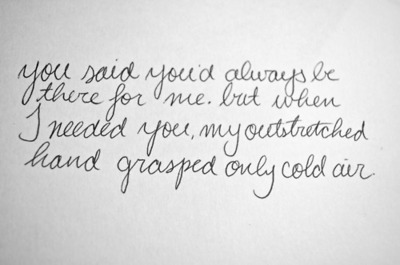 you said you'd always be
there for me. but when
I needed you, my outstretched
hand grasped only cold air.